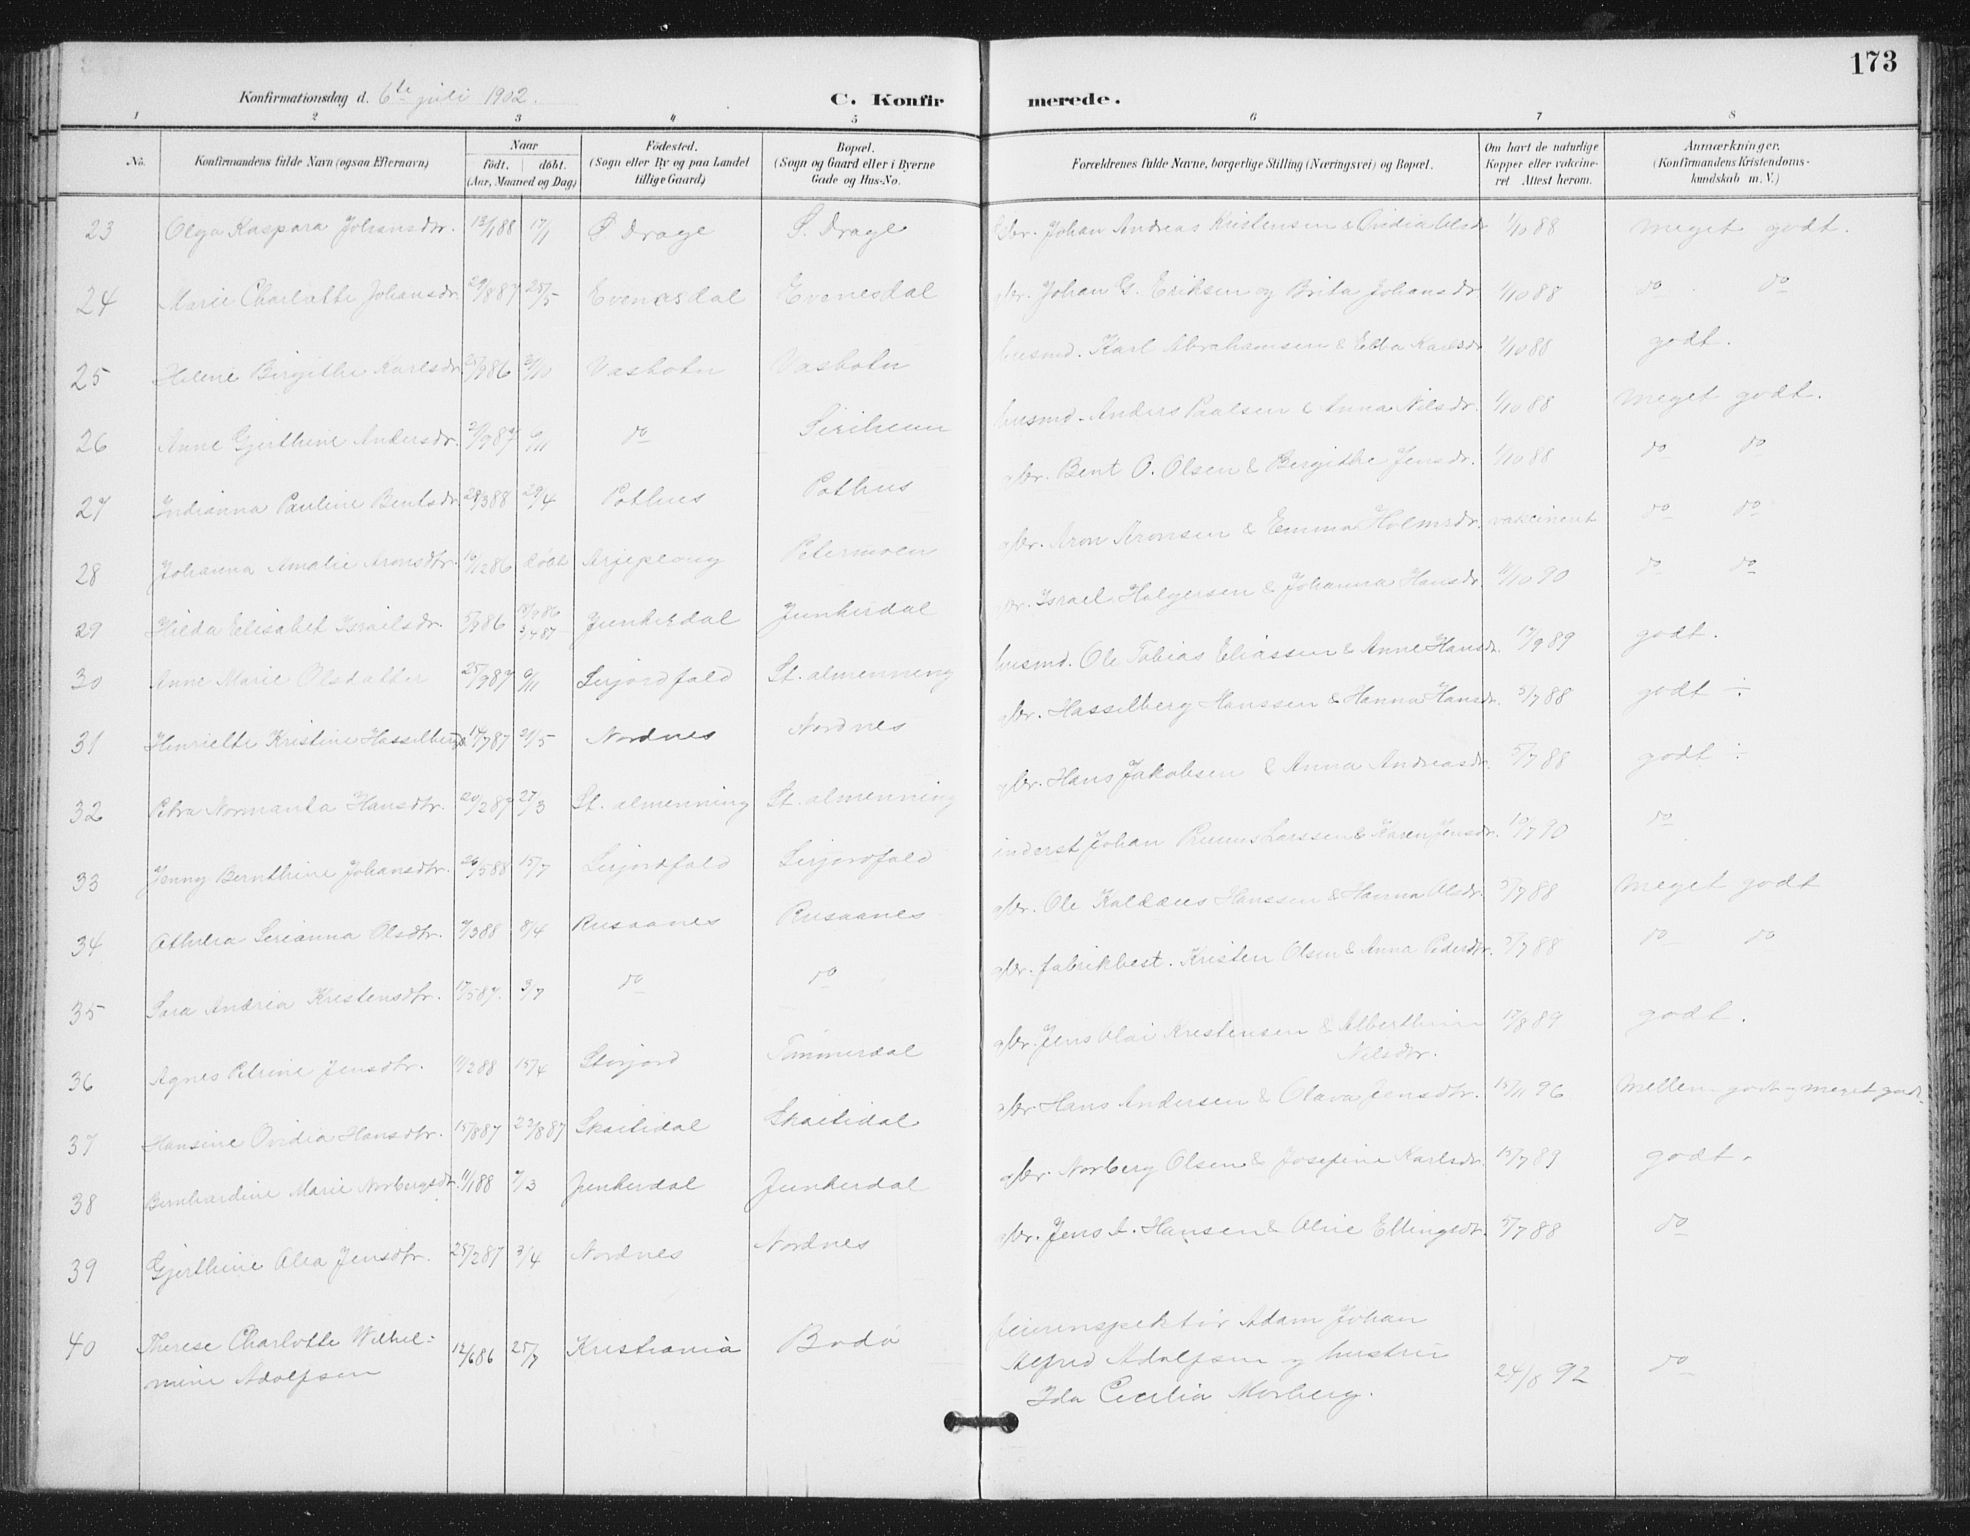 173
Konfirmationsdag d. 6te juli 1902.
C. Konfirmerede.
1 2 3 4 5 6 7 8
No. Konfirmandens fulde Navn (ogsaa Efternavn) Naar født. døbt. (Aar, Maaned og Dag) Fødested. (Sogn eller By og paa Landet tillige Gaard) Bopæl. (Sogn og Gaard eller i Byerne Gade og Hus-No. Forældrenes fulde Navne, borgerlige Stilling (Næringsvei) og Bopæl. Om havt de naturlige Kopper eller vakcineret Attest herom. Anmærkninger. (Konfirmandens Kristendomskundskab m. V.)
23 Olga Kaspara Johansdtr. 13/1 88 17/1 S. Drage S. Drage Johan Andreas Kristensen & 1/10 88 meget godt.
24 Marie Charlotte Johansdr. 29/8 87 25/5 Evenesdal Evenesdal gbr. Johan G. Eriksen og Brita Johansdr. 1/10 88 do do
25 Helene Birgithe Karlsdr. 25/9 86 Vasbotn Vasbotn husmd. Karl Abrahamsen & Ebba Karlsdr. 1/10 88 godt.
26 Anne Gjerthine Andersdr. 6/11 do husmd. Anders Paulsen & Anna Nilsdr. 1/10 88 meget godt.
27 Indianna Pauline Bentsdr. 28/3 88 29/4 Pothus Pothus gbr. Bent O. Olsen & Bergithe Jensdr. 1/10 88 do do
28 Johanna Amalie Aronsdtr. 16/2 86 døbt Arjeplong Petermoen gbr. Aron Aronsen & Emma Holmsdr. vakcineret do do
29 Hilda Elisabet Israelsdr. 5/7 86 Junkerdal Junkerdal gbr. Israel Holgersen & Johanna Hansdr. 11/10 90 do do
30 Anne Marie Olsdatter 25/9 87 6/11 Lerjordfald St. almenning husmd. Ole Tobias Eliassen & Anne Hansdr. 17/9 89 godt.
31 Henriette Kristine Hasselbergsdr. 17/7 87 21/5 Nordnes Nordnes gbr. Hasselberg Hanssen & Hanna Hansdr. 5/7 88 godt ÷
32 Petra Normanta Hansdtr. 20/2 87 27/3 St. almenning St. almenning gbr. Hans Jakobsen & Anna Andreasdr. 5/7 88 godt ÷
33 Jenny Bernthine Johansdtr. 26/5 88 15/7 Lerjordfald Lerjordfald inderst Johan Larssen & Karen Jensdr. 19/7 90 do
34 Serianna Olsdtr. 7/3 88 8/4 Rusaanes Rusaanes gbr. Ole Kaldæus Hanssen & Hanna Olsdr. 5/7 88 meget godt
35 Sara Andrea Kristensdtr. 17/5 87. 3/7 do do gbr. fabrikbest. Kristen Olsen & Anna Pedersdtr. 5/7 88 do do
36 Agnes Petrine Jensdtr. 11/2 88 15/4 Storjord Tømmerdal gbr. Jens Olai Kristensen & Alberthine 17/8 89 godt.
Nilsdtr.
37 Hansine Ovidia Hansdtr. 15/8 87 22/8 87 Skaitidal Skaitidal gbr. Hans Andersen & Olava Jensdtr. 15/11 96 mellem godt og meget godt.
38 Bernhardine Marie Norbergsdr. 11/1 88 7/3 Junkerdal Junkerdal gbr. Norberg Olsen & Josefine Karlsdr. 15/7 89 godt.
39 Gjerthine Olea Jensdtr. 25/2 87 3/4 Nordnes Nordnes gbr. Jens A. Hansen & Oline Ellingsdtr. 5/7 88 do
40 Therese Charlotte Wilhel- 12/6 86 25/7 Kristiania Bodø feierinspektør Adam Johan
mine Adolfsen Alfred Adolfsen og hustru 24/8 92 do
Ida Cecilia Morberg.